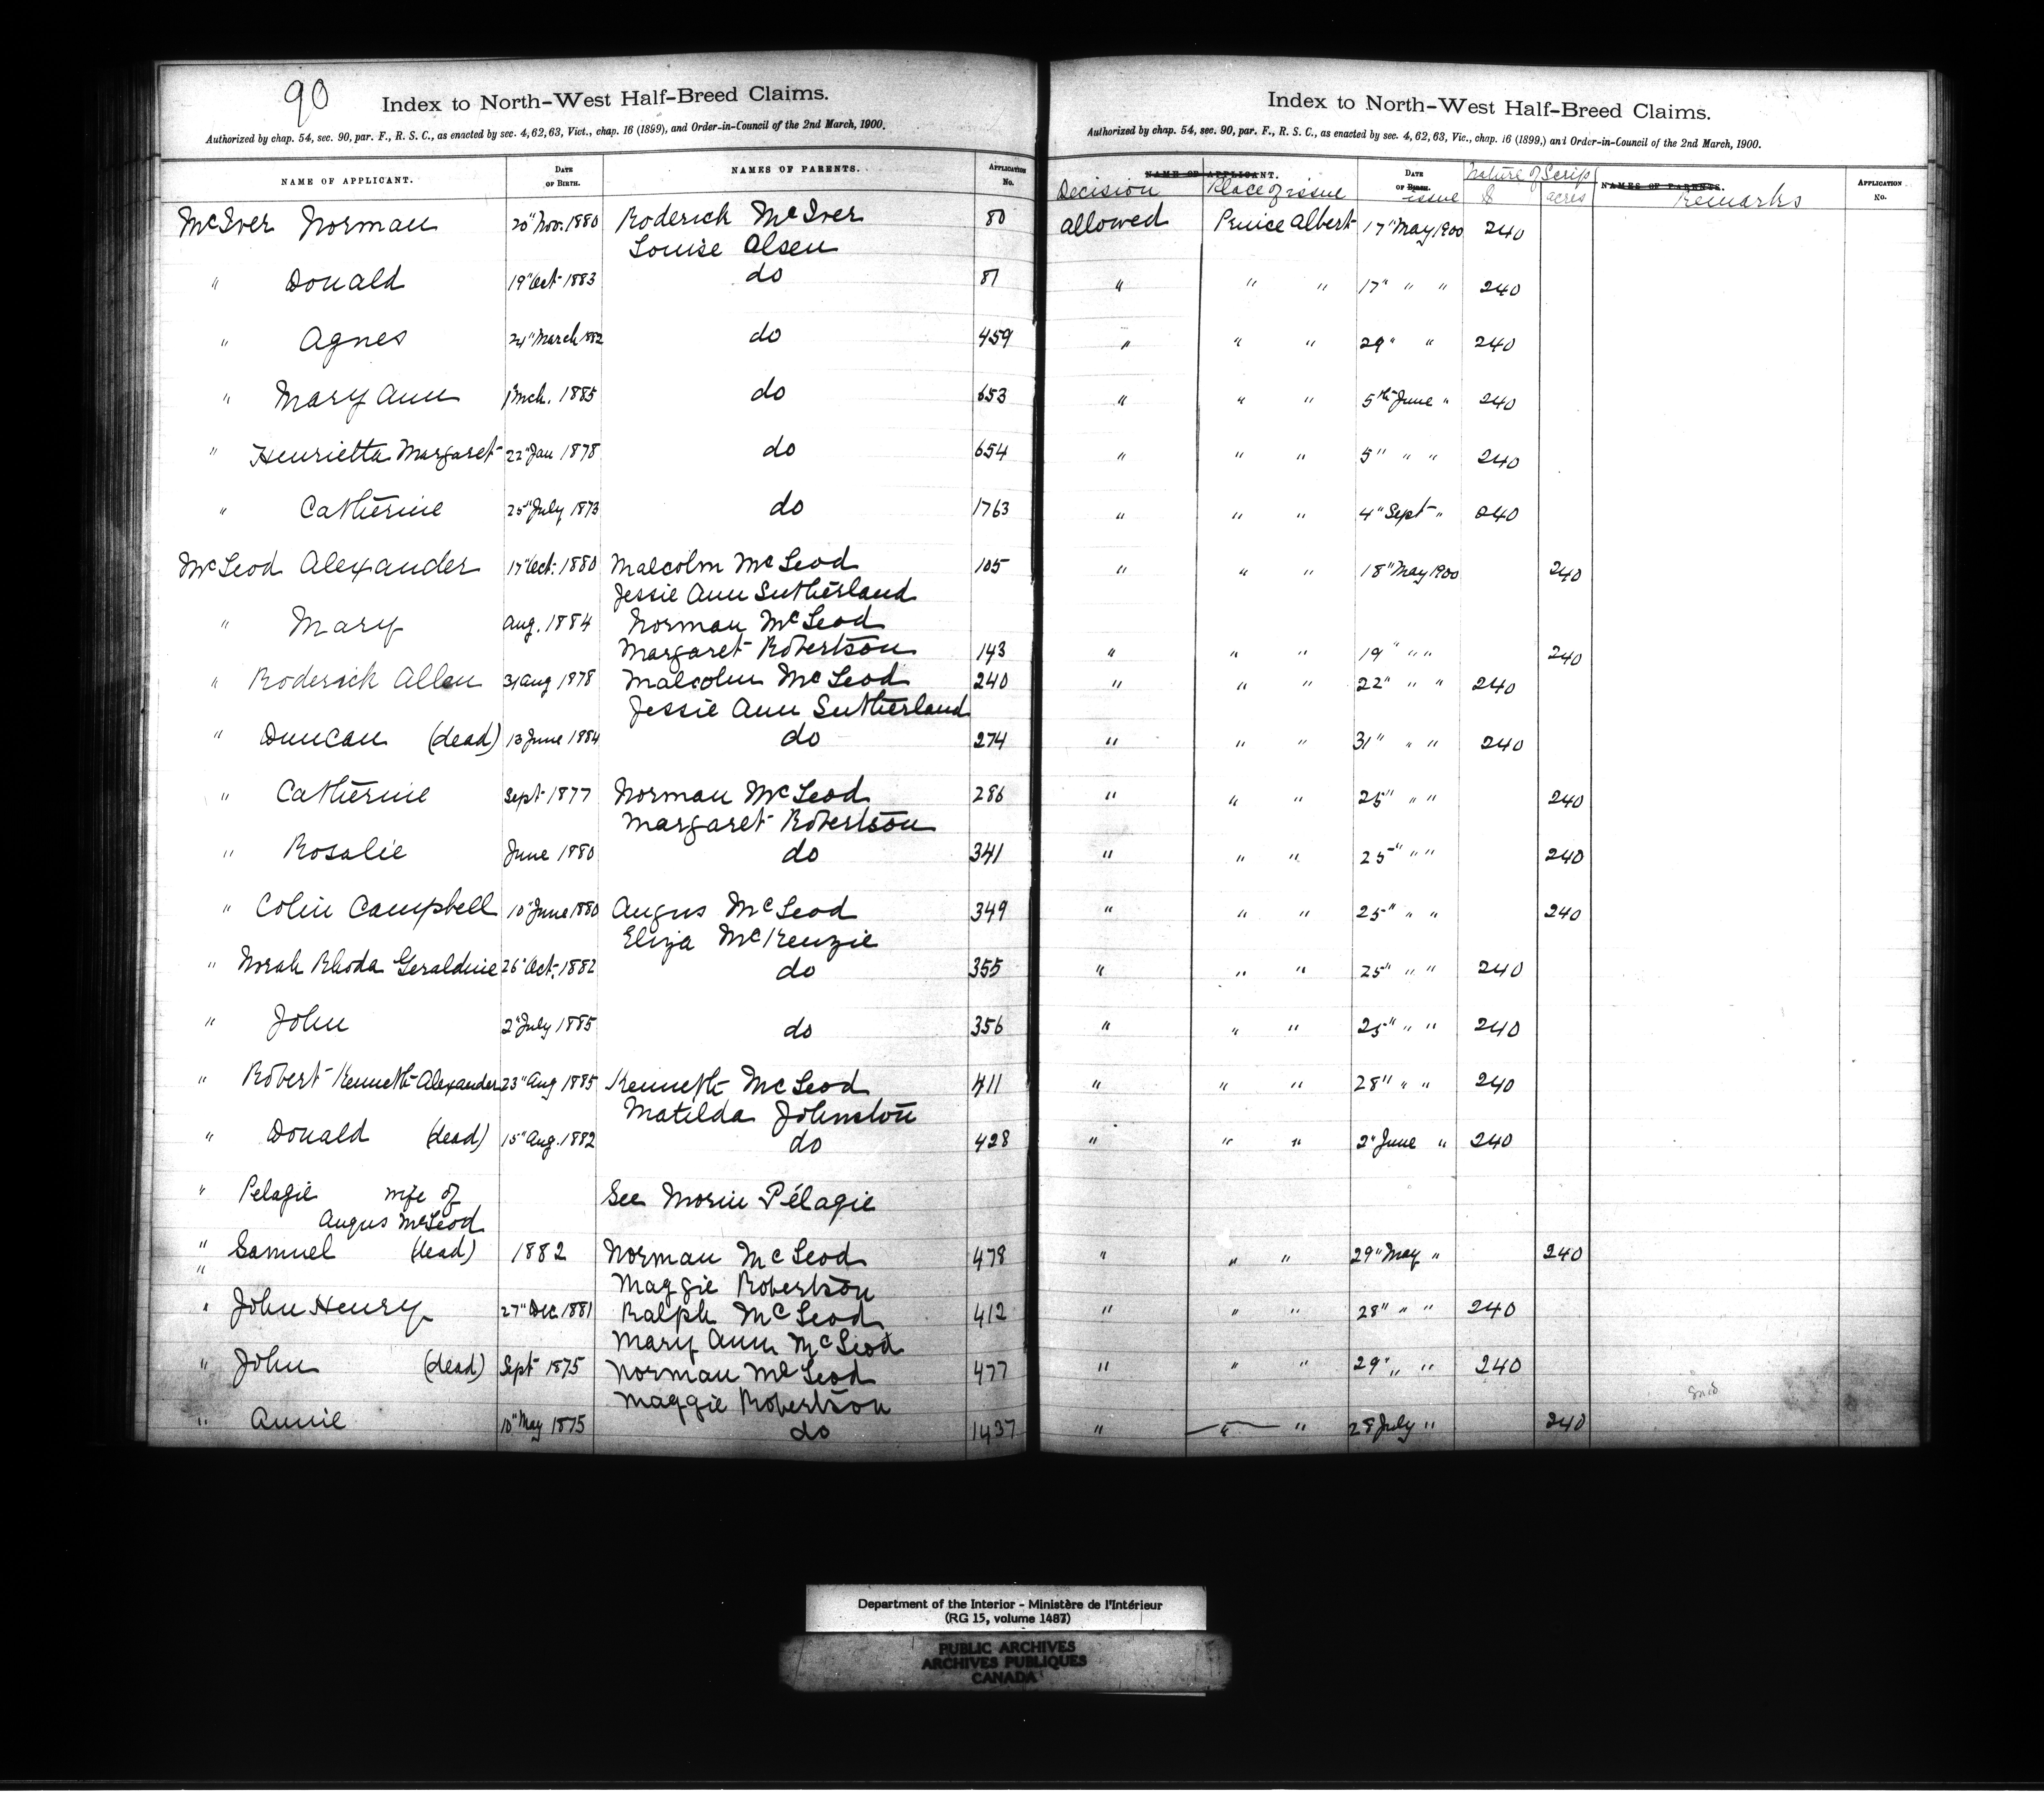 90
Index to North-West Half-Breed Claims.
Authorized by chap. 54, sec. 90, par. F., R. S. C., as enacted by sec. 4, 62, 63, Vict., chap. 16 (1899), and Order-in-Council of the 2nd March, 1900.
NAME OF APPLICANT. DATE OF BIRTH. NAMES OF PARENTS. APPLICATION No.
McIver Norman 20" Nov. 1880 Roderick McIver 80
Louise Olsen
" Donald 19" Oct 1883 do 81
" Agnes 24" March 1882 do 459
" Mary Ann 1 Mch. 1885 do 653
" Henrietta Margaret 22" Jan 1878 do 654
" Catherine 25" July 1873 do 1763
McLeod Alexander 17" Oct. 1880 Malcolm McLeod 105
Jessie Ann Sutherland
" Mary Aug. 1884 Norman McLeod
Margaret Robertson 143
" Roderick Allen 31 Aug 1878 Malcolm McLeod 240
Jessie Ann Sutherland
" Duncan (dead) 13 June 1884 do 274
" Catherine Sept 1877 Norman McLeod 286
Margaret Robertson
" Rosalie June 1880 do 341
" Colin Campbell 10" June 1880 Angus McLeod 349
Eliza McKenzie
" Norah Rhoda Geraldine 26" Oct. 1882 do 355
" John 2" July 1885 do 356
" Robert Kenneth Alexander 23" Aug 1885 Kenneth McLeod 411
Matilda Johnston
" Donald (dead) 15" Aug. 1882 do 428
" Pelagie wife of See Morin Pélagie
Angus McLeod
" Samuel (dead) 1882 Norman McLeod 478
" Maggie Robertson
" John Henry 27" Dec. 1881 Ralph McLeod 412
Mary Ann McLeod
" John (dead) Sept 1875 Norman McLeod 477
Maggie Robertson
" Annie 10" May 1875 do 1437
Index to North-West Half-Breed Claims.
Authorized by chap. 54, sec. 90, par. F., R. S. C., as enacted by sec. 4, 62, 63, Vic., chap. 16 (1899,) and Order-in-Council of the 2nd March, 1900.
NAME OF APPLICANT. DATE OF BIRTH. Nature of Scrip NAMES OF PARENTS. APPLICATION No.
Decision Place of issue issue $ acres Remarks
allowed Prince Albert 17" May 1900 240
" " " 17" " " 240
" " " 29" " 240
" " " 5th June " 240
" " " 5" " " 240
" " " 4" Sept " 240
" " " 18" May 1900 240
" " " 19" " " 240
" " " 22" " " 240
" " " 31" " " 240
" " " 25" " " 240
" " " 25" " " 240
" " " 25" " " 240
" " " 25" " " 240
" " " 25" " " 240
" " " 28" " " 240
" " " 2" June " 240
" " " 29" May " 240
" " " 28" " " 240
" " " 29" " " 240
" " " 28 July " 240
Department of the Interior - Ministère de l'Intérieur
(RG 15, volume 1487)
PUBLIC ARCHIVES
ARCHIVES PUBLIQUES
CANADA